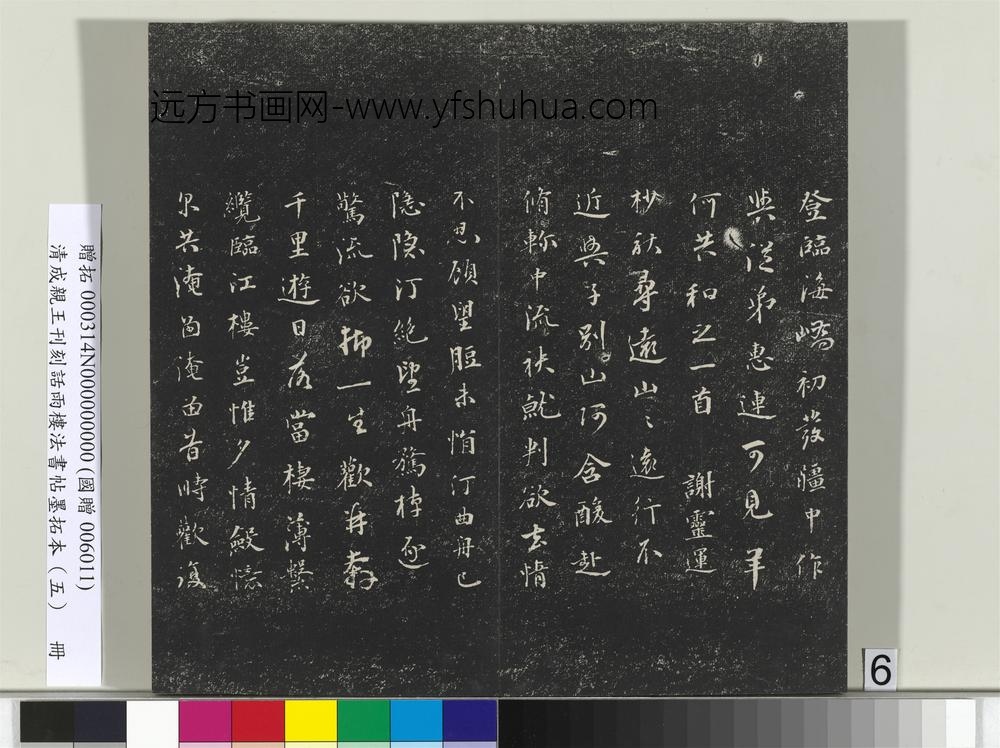 登臨海嶠初發疆中作
與從弟惠連可見羊
何共和之一首 謝靈運
杪秋尋遠山々遠行不
近與子別山阿含酸赴
脩軫中流袂就判欲去情
不忍顧望脰未悁汀曲舟已
隱隱汀絕望舟騖棹逐
驚流欲抑一生歡并奔
千里遊日落當棲薄繫
纜臨江樓豈惟夕情斂憶
尔共淹留淹留昔時歡復
远方书画网-www.yfshuhua.com
贈拓 000314N000000000(國贈 006011)
清成親王刊刻話雨樓法書帖墨拓本(五) 冊
6